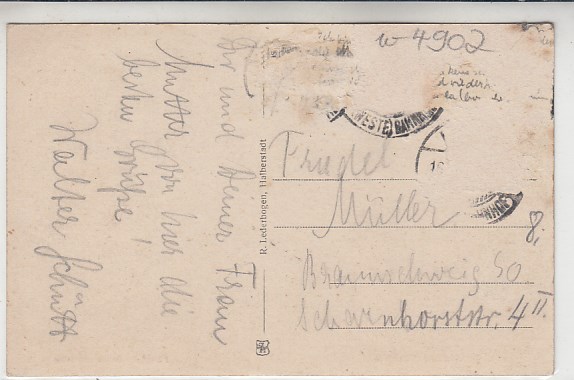 w-4902
Dir und Deiner Frau
Mutter von hier die
besten Grüße!
Walter Schütt
R. Lederbogen, Halberstadt
(WESTF) BAHNH
BAHNHOF
Friedel
Müller
Braunschweig SO
Scharnhorststr. 4 II.
8,